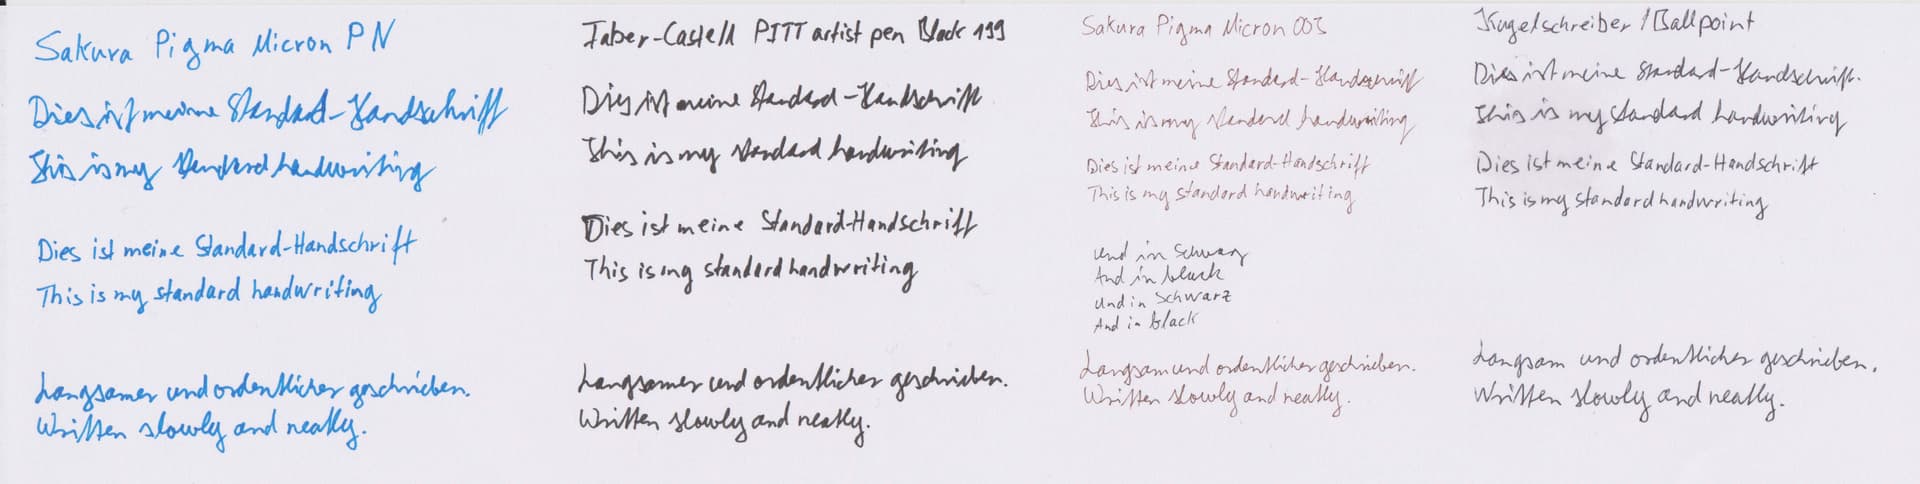 Sakura Pigma Micron PN
Dies ist meine Standard-Handschrift
This is my standard handwriting
Dies ist meine Standard-Handschrift
This is my standard handwriting
Langsamer und ordentlicher geschrieben.
Written slowly and neatly.
Faber-Castell PITT artist pen Black 199
Dies ist meine Standard-Handschrift
This is my standard handwriting
Dies ist meine Standard-Handschrift
This is my standard handwriting
Langsamer und ordentlicher geschrieben.
Written slowly and neatly.
Sakura Pigma Micron 003
Dies ist meine Standard-Handschrift
This is my standard handwriting
Dies ist meine Standard-Handschrift
This is my standard handwriting
Und in Schwarz
And in black
Und in Schwarz
And in black
Langsam und ordentlicher geschrieben.
Written slowly and neatly.
Kugelschreiber / Ballpoint
Dies ist meine Standard-Handschrift.
This is my standard handwriting
Dies ist meine Standard-Handschrift
This is my standard handwriting
Langsam und ordentlicher geschrieben.
Written slowly and neatly.